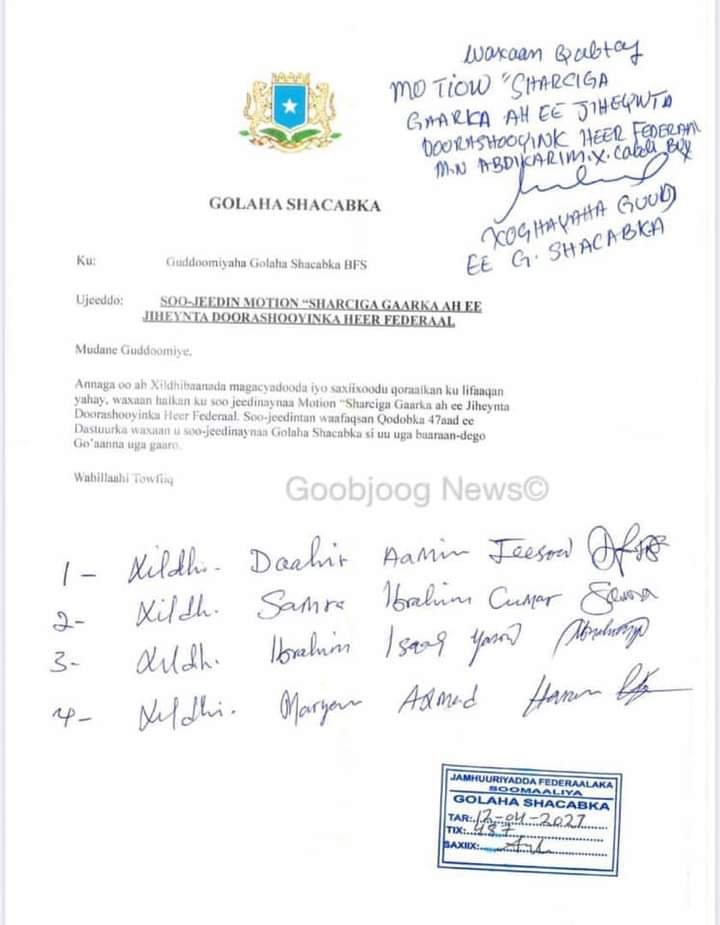 Waxaan Qabtay
MOTION "SHARCIGA
GAARKA AH EE JIHEYNTA
DOORASHOOYINK HEER FEDERAAL
M.N ABDIKARIM.X.
XOGHAYAHA GUUD
EE G. SHACABKA
GOLAHA SHACABKA
Ku: Guddoomiyaha Golaha Shacabka BFS
Ujeeddo: SOO-JEEDIN MOTION “SHARCIGA GAARKA AH EE
JIHEYNTA DOORASHOOYINKA HEER FEDERAAL
Mudane Guddoomiye,
Annaga oo ah Xildhibaanada magacyadooda iyo saxiixoodu qoraalkan ku lifaaqan
yahay, waxaan halkan ku soo jeedinaynaa Motion “Sharciga Gaarka ah ee Jiheynta
Doorashooyinka Heer Federaal. Soo-jeedintan waafaqsan Qodobka 47aad ee
Dastuurka waxaan u soo-jeedinaynaa Golaha Shacabka si uu uga baaraan-dego
Go'aanna uga gaaro.
Wabillaahi Towfiiq
Goobjoog News©
1- Xildh. Daahir Aamin Jeesow
2- Xildh. Samra Ibrahim Cumar
3- Xildh. Ibrahim Isaaq Yarow
4- Xildh. Maryan Axmed Harun
JAMHUURIYADDA FEDERAALAKA
SOOMAALIYA
GOLAHA SHACABKA
TAR: 12-04-2027
TIX: 487
SAXIIX: